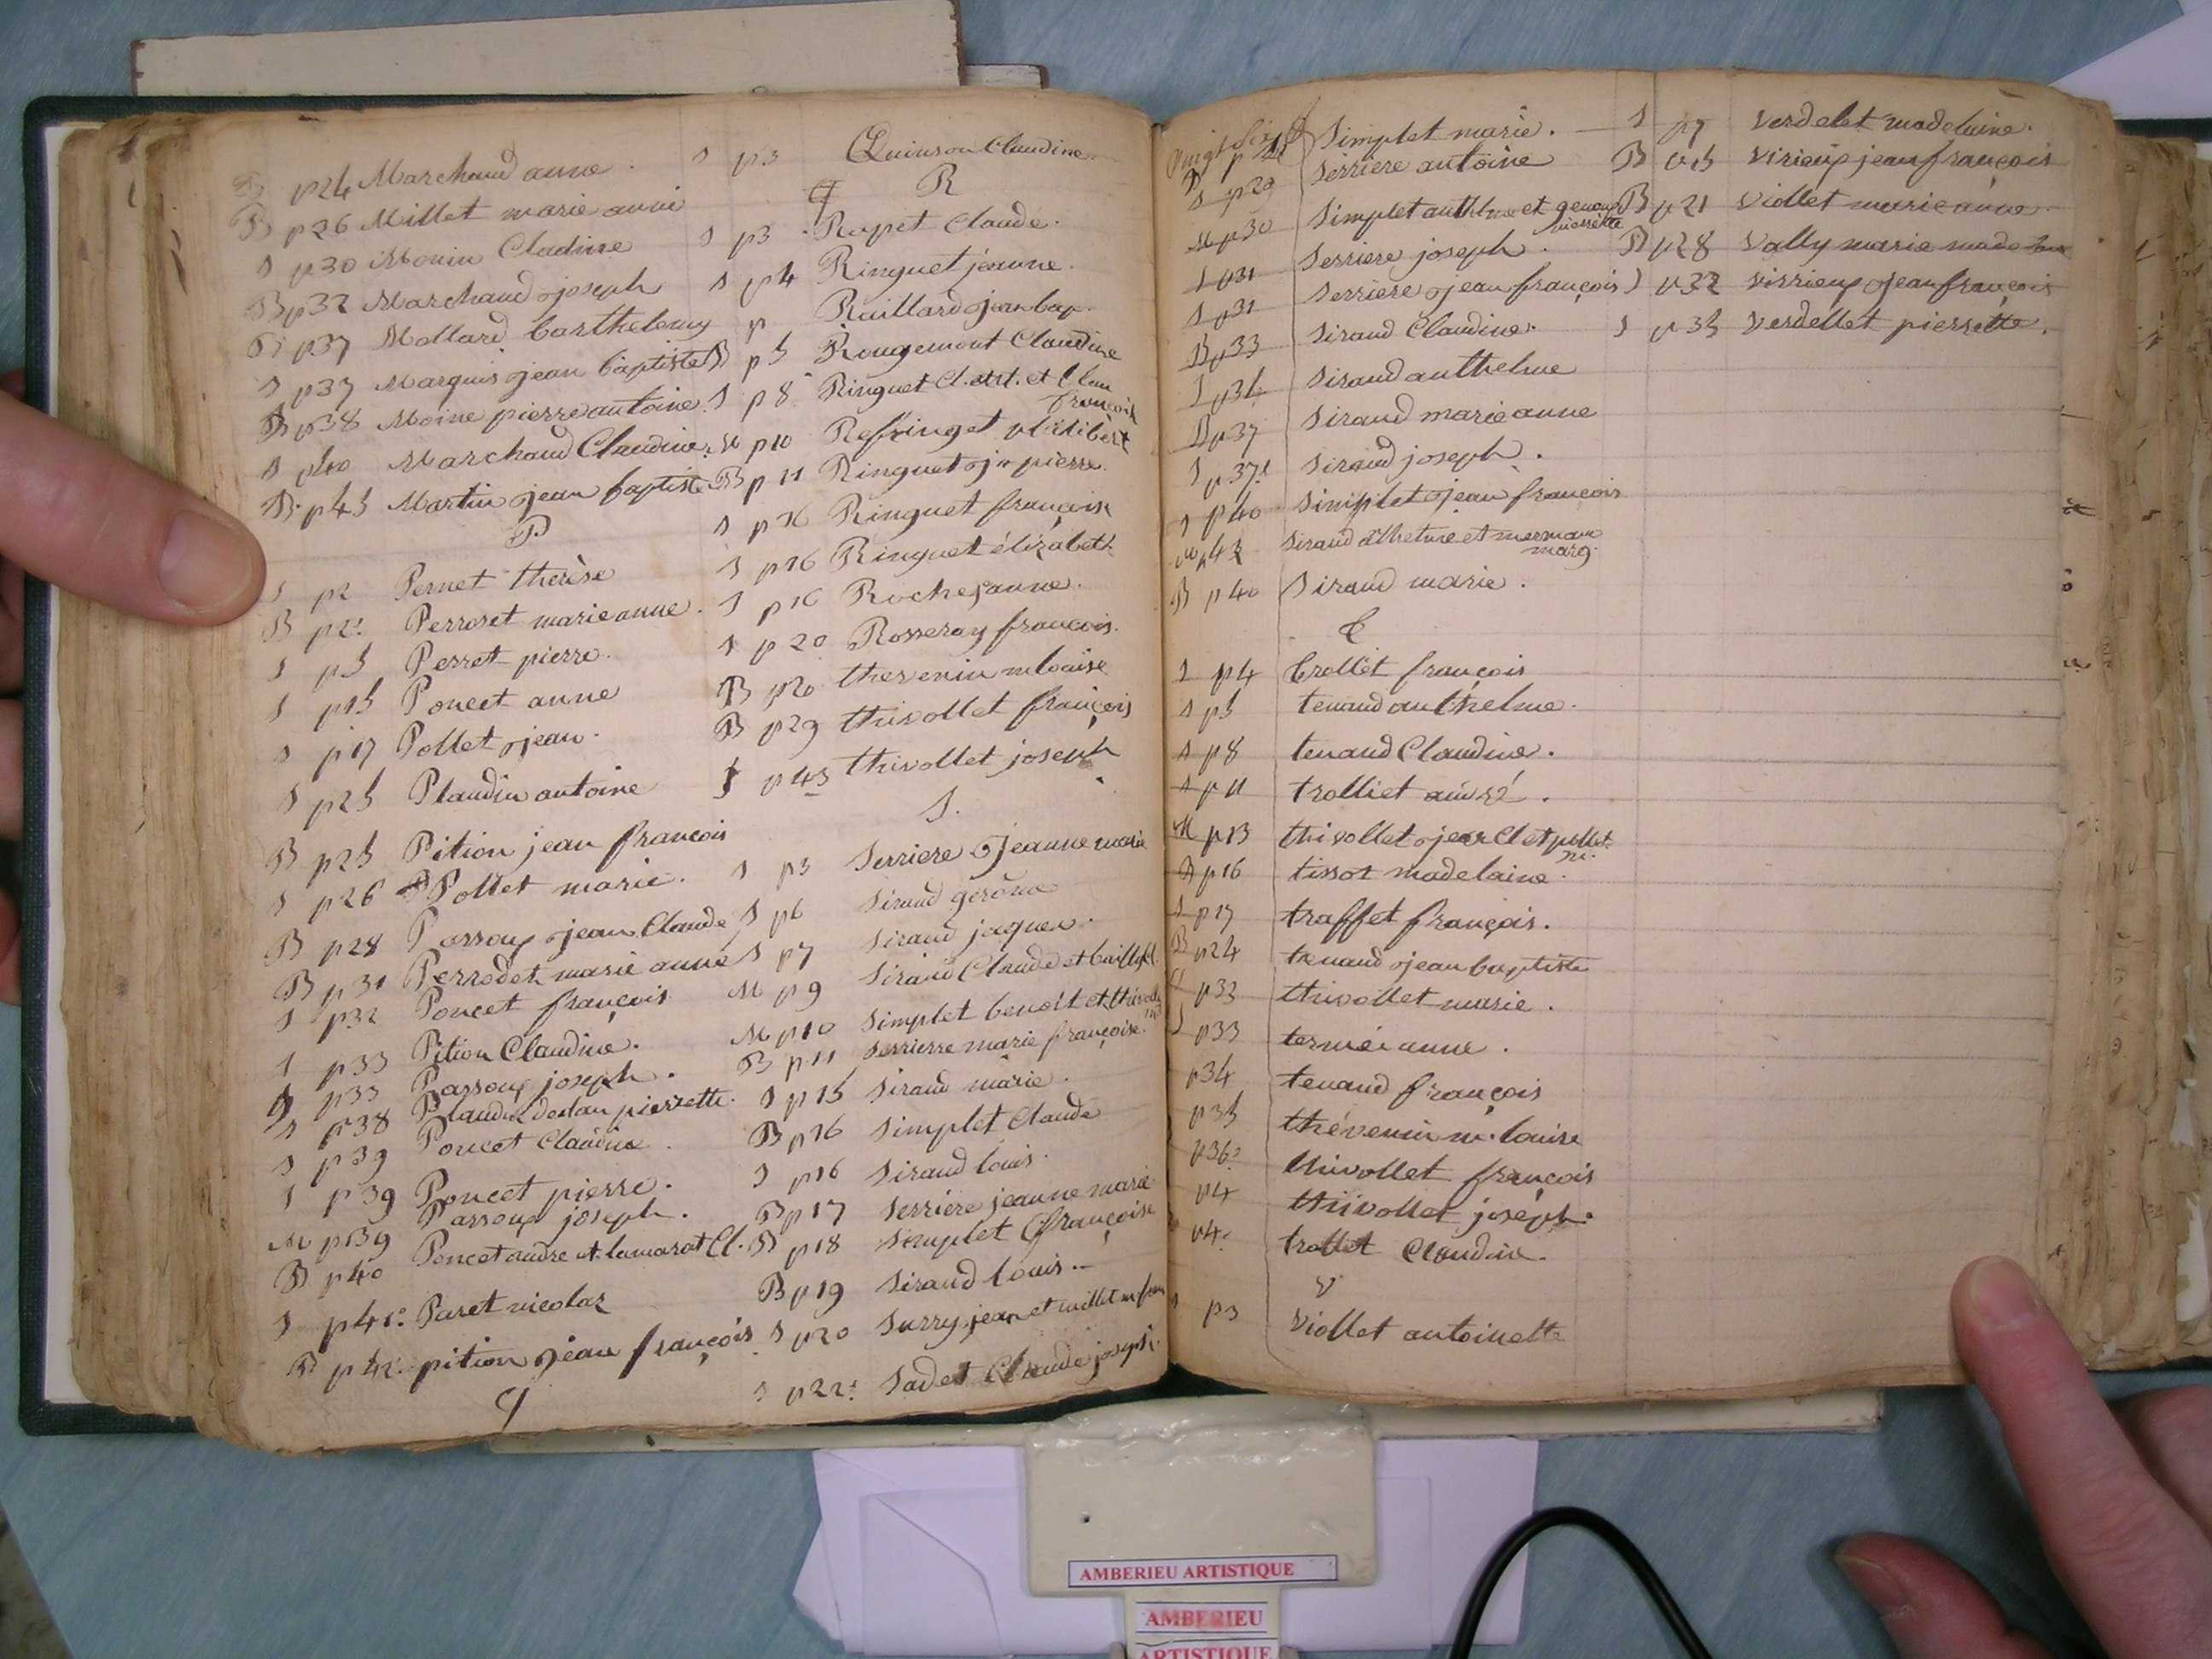 B p24 Marchand anne .
B p26 Millet marie anne
S p30 Monin Cladine
B p32 Marchand joseph
B p37 Mollard barthelemy
S p37 Marquis jean baptiste
B p38 Moine pierre antoine.
S p40 Marchand Claudine.
B p45 Martin jean baptiste
P
S p2 Pernet therèse
B p2 Perroset marie anne .
S p5 Perret pierre.
S p15 Poncet anne
S p17 Pollet jean.
S p25 Plandin antoine
B p25 Pition jean françois
S p26 Pollet marie.
B p28 Passoup jean Claude
B p31 Perrodet marie anne
S p32 Poncet françois
S p33 Pition Claudine.
p33 Passoup joseph.
S p38 pierrette.
S p39 Poncet Claudine .
S p39 Poncet pierre.
Passoup joseph.
M p39 Poncet andre et lamarat Cl.
B p40
S p41 Paret nicolas
B p42 pition jean françois
q
S p3 Quinson Claudine
R
S p3 Rapet Claude.
S p4 Ringuet jeanne.
p Raillard jean bap.
B p5 Rougemont Claudine
S p8 Ringuet Cl. et Clau
françois
M p10 Refringet philibert
B p11 Ringuet jn pierre.
S p16 Ringuet françois
S p16 Ringuet élizabeth
S p16 Roche jeanne.
S p20 Rosseray françois.
B p20 thevenin m louise
B p29 thivollet françois
S p43 thivollet joseph
S.
S p3 Serriere Jeanne marie
S p6 Siraud gerôme
S p7 Siraud jacques.
M p9 Siraud Claude et bailly
M p10 Simplet benoit et thivollet
B p11 Serrierre marie françoise.
S p15 Siraud marie.
B p16 Simplet Claude
S p16 Siraud louis.
B p17 Serriere jeanne marie
B p18 Simplet françoise
B p19 Siraud louis.
S p20 Surry jean et millet m fran
S p22 Sadet Claude joseph.
Simplet marie.
S p29 Serriere antoine
M p30 Simplet anthelme et genoux
pierrette
S p31 Serriere joseph.
S p31 Serriere jean françois
B p33 Siraud Claudine.
S p34 Siraud anthelme
B p37 Siraud marie anne
S p37 Siraud joseph.
S p40 Simplet jean françois
M p43 Siraud athelme et merman
marg.
B p40 Siraud marie.
t
S p4 trollet françois
S p5 tenand anthelme.
S p8 tenand Claudine.
S p11 trolliet aimé.
M p13 thivollet jean Cl et pollet
p16 tissot madelaine.
S p17 traffet françois.
B p24 tenand jean baptiste
p33 thivollet marie.
S p33 termée anne.
p34 tenand françois
p35 thévenin m. louise
p36 thivollet françois
p4 thivollet joseph.
p4 trollet Claudine.
V
S p3 Viollet antoinette
S p7 Verdelet madelaine.
B p15 Virieup jean françois
B p21 Viollet marie anne
B p28 Vally marie made
S p32 Virrieup jean françois
S p35 Verdellet pierrette.
AMBERIEU ARTISTIQUE
AMBERIEU
ARTISTIQUE